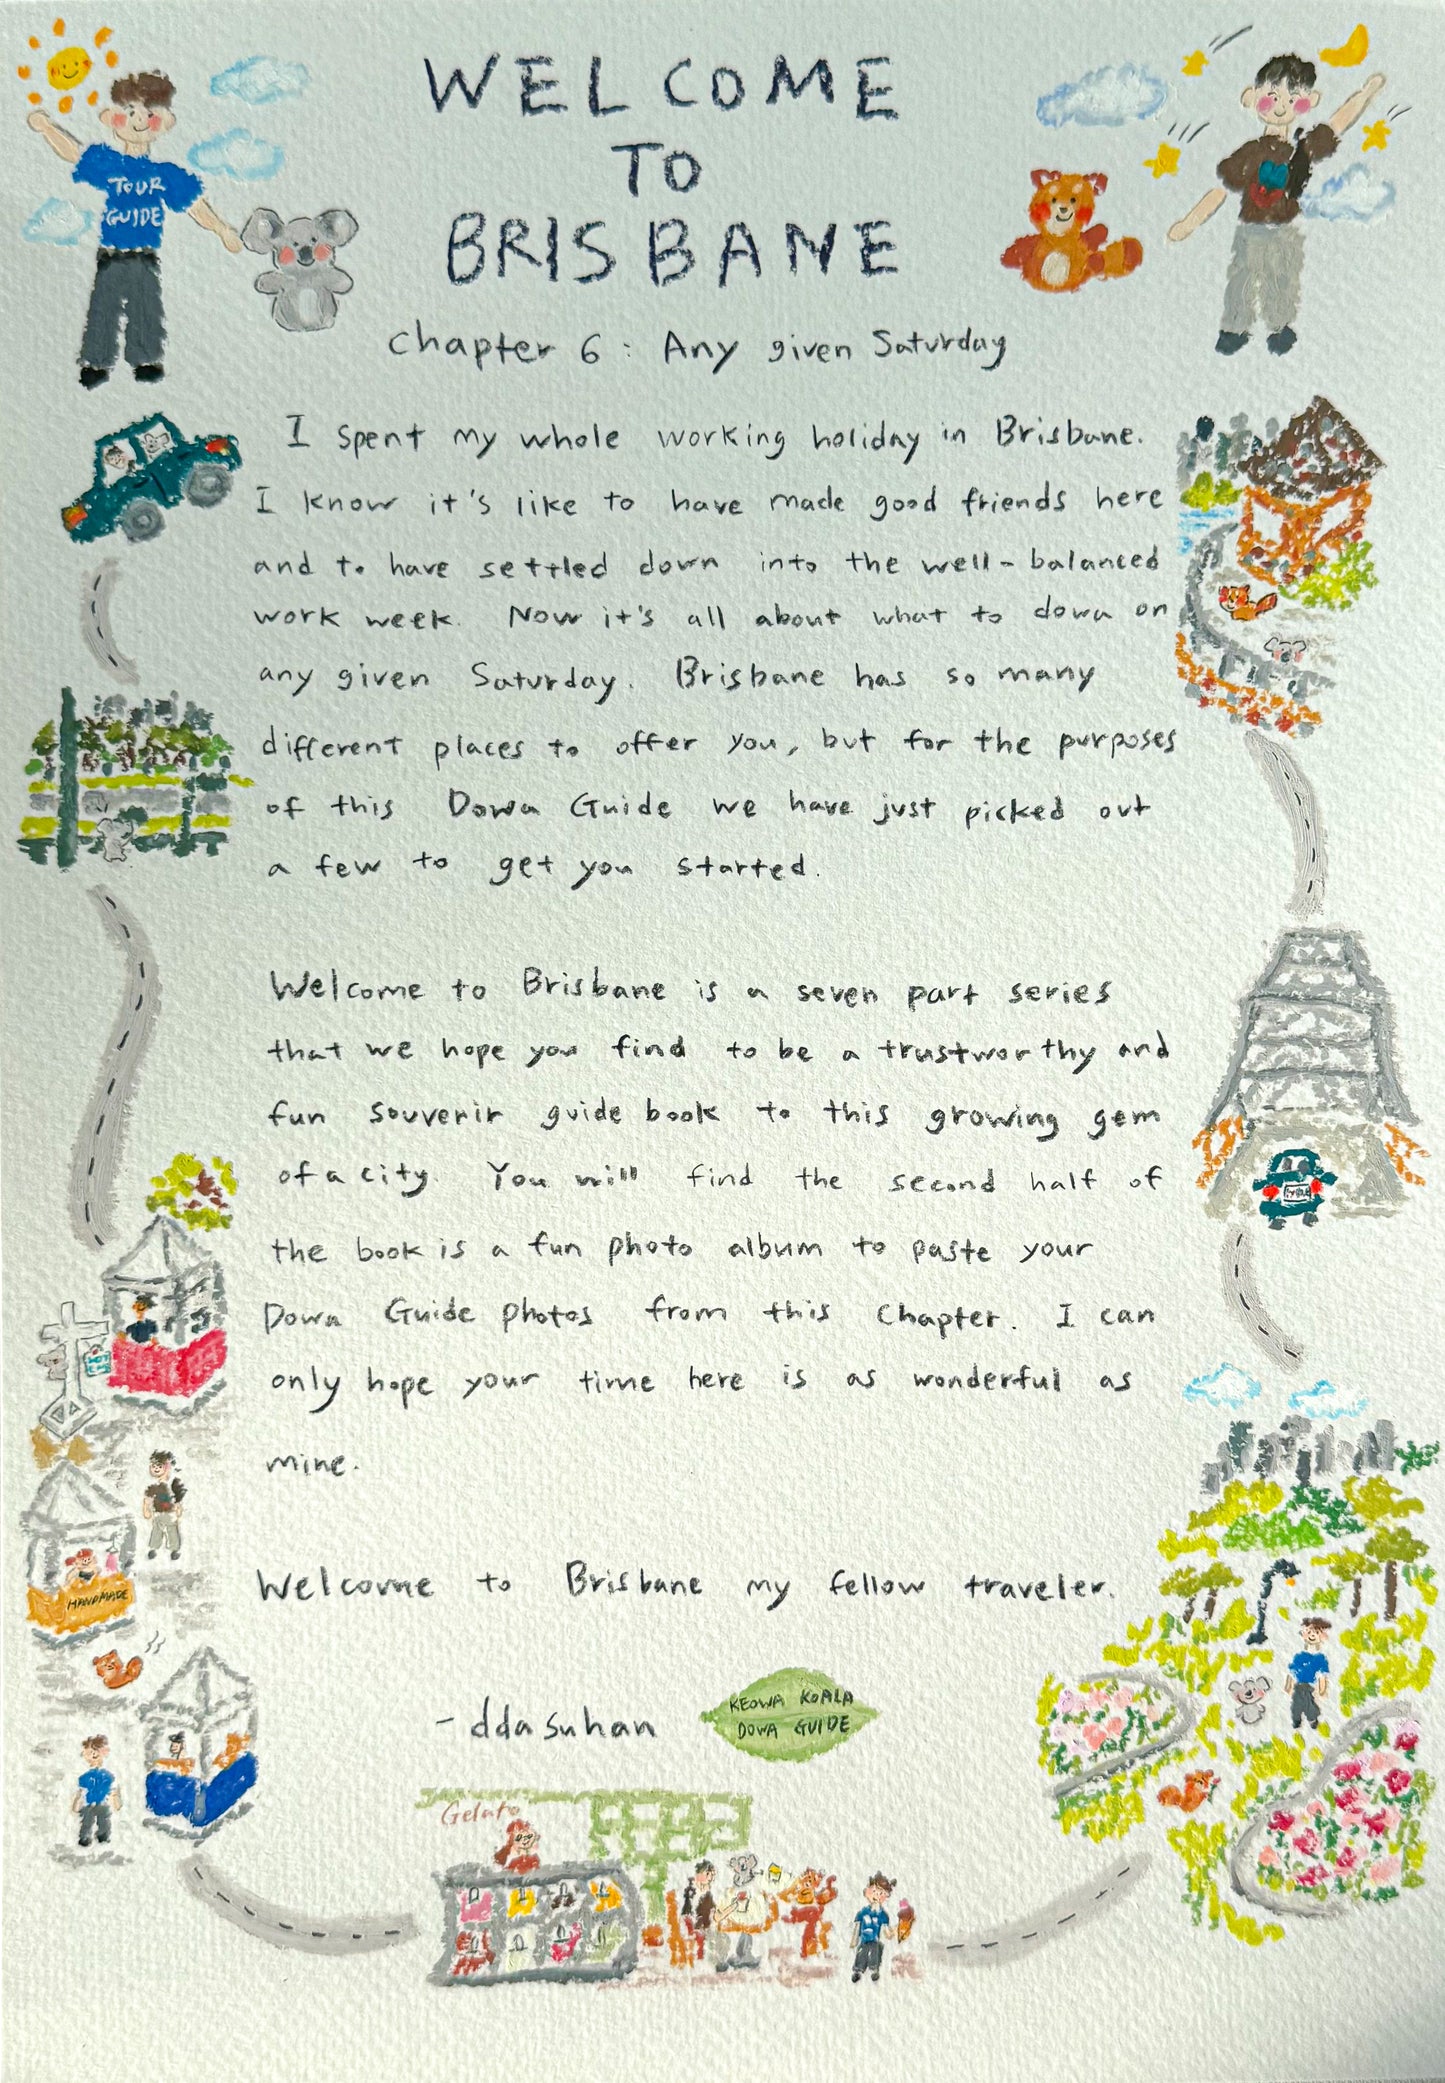 WELCOME
TO
BRISBANE
TOUR
GUIDE
chapter 6 : Any given Saturday
I spent my whole working holiday in Brisbane.
I know it's like to have made good friends here
and to have settled down into the well-balanced
work week. Now it's all about what to dowa on
any given Saturday. Brisbane has so many
different places to offer you, but for the purposes
of this Dowa Guide we have just picked out
a few to get you started.
Welcome to Brisbane is a seven part series
that we hope you find to be a trustworthy and
fun souvenir guide book to this growing gem
of a city. You will find the second half of
the book is a fun photo album to paste your
Dowa Guide photos from this Chapter. I can
only hope your time here is as wonderful as
mine.
HANDMADE
Welcome to Brisbane my fellow traveler.
- ddasuhan
KEOWA KOALA
DOWA GUIDE
Gelato